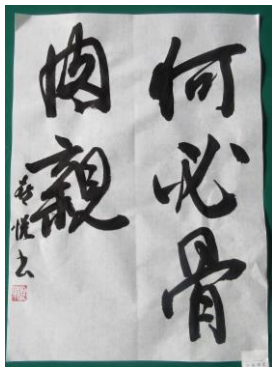 何必骨
肉親